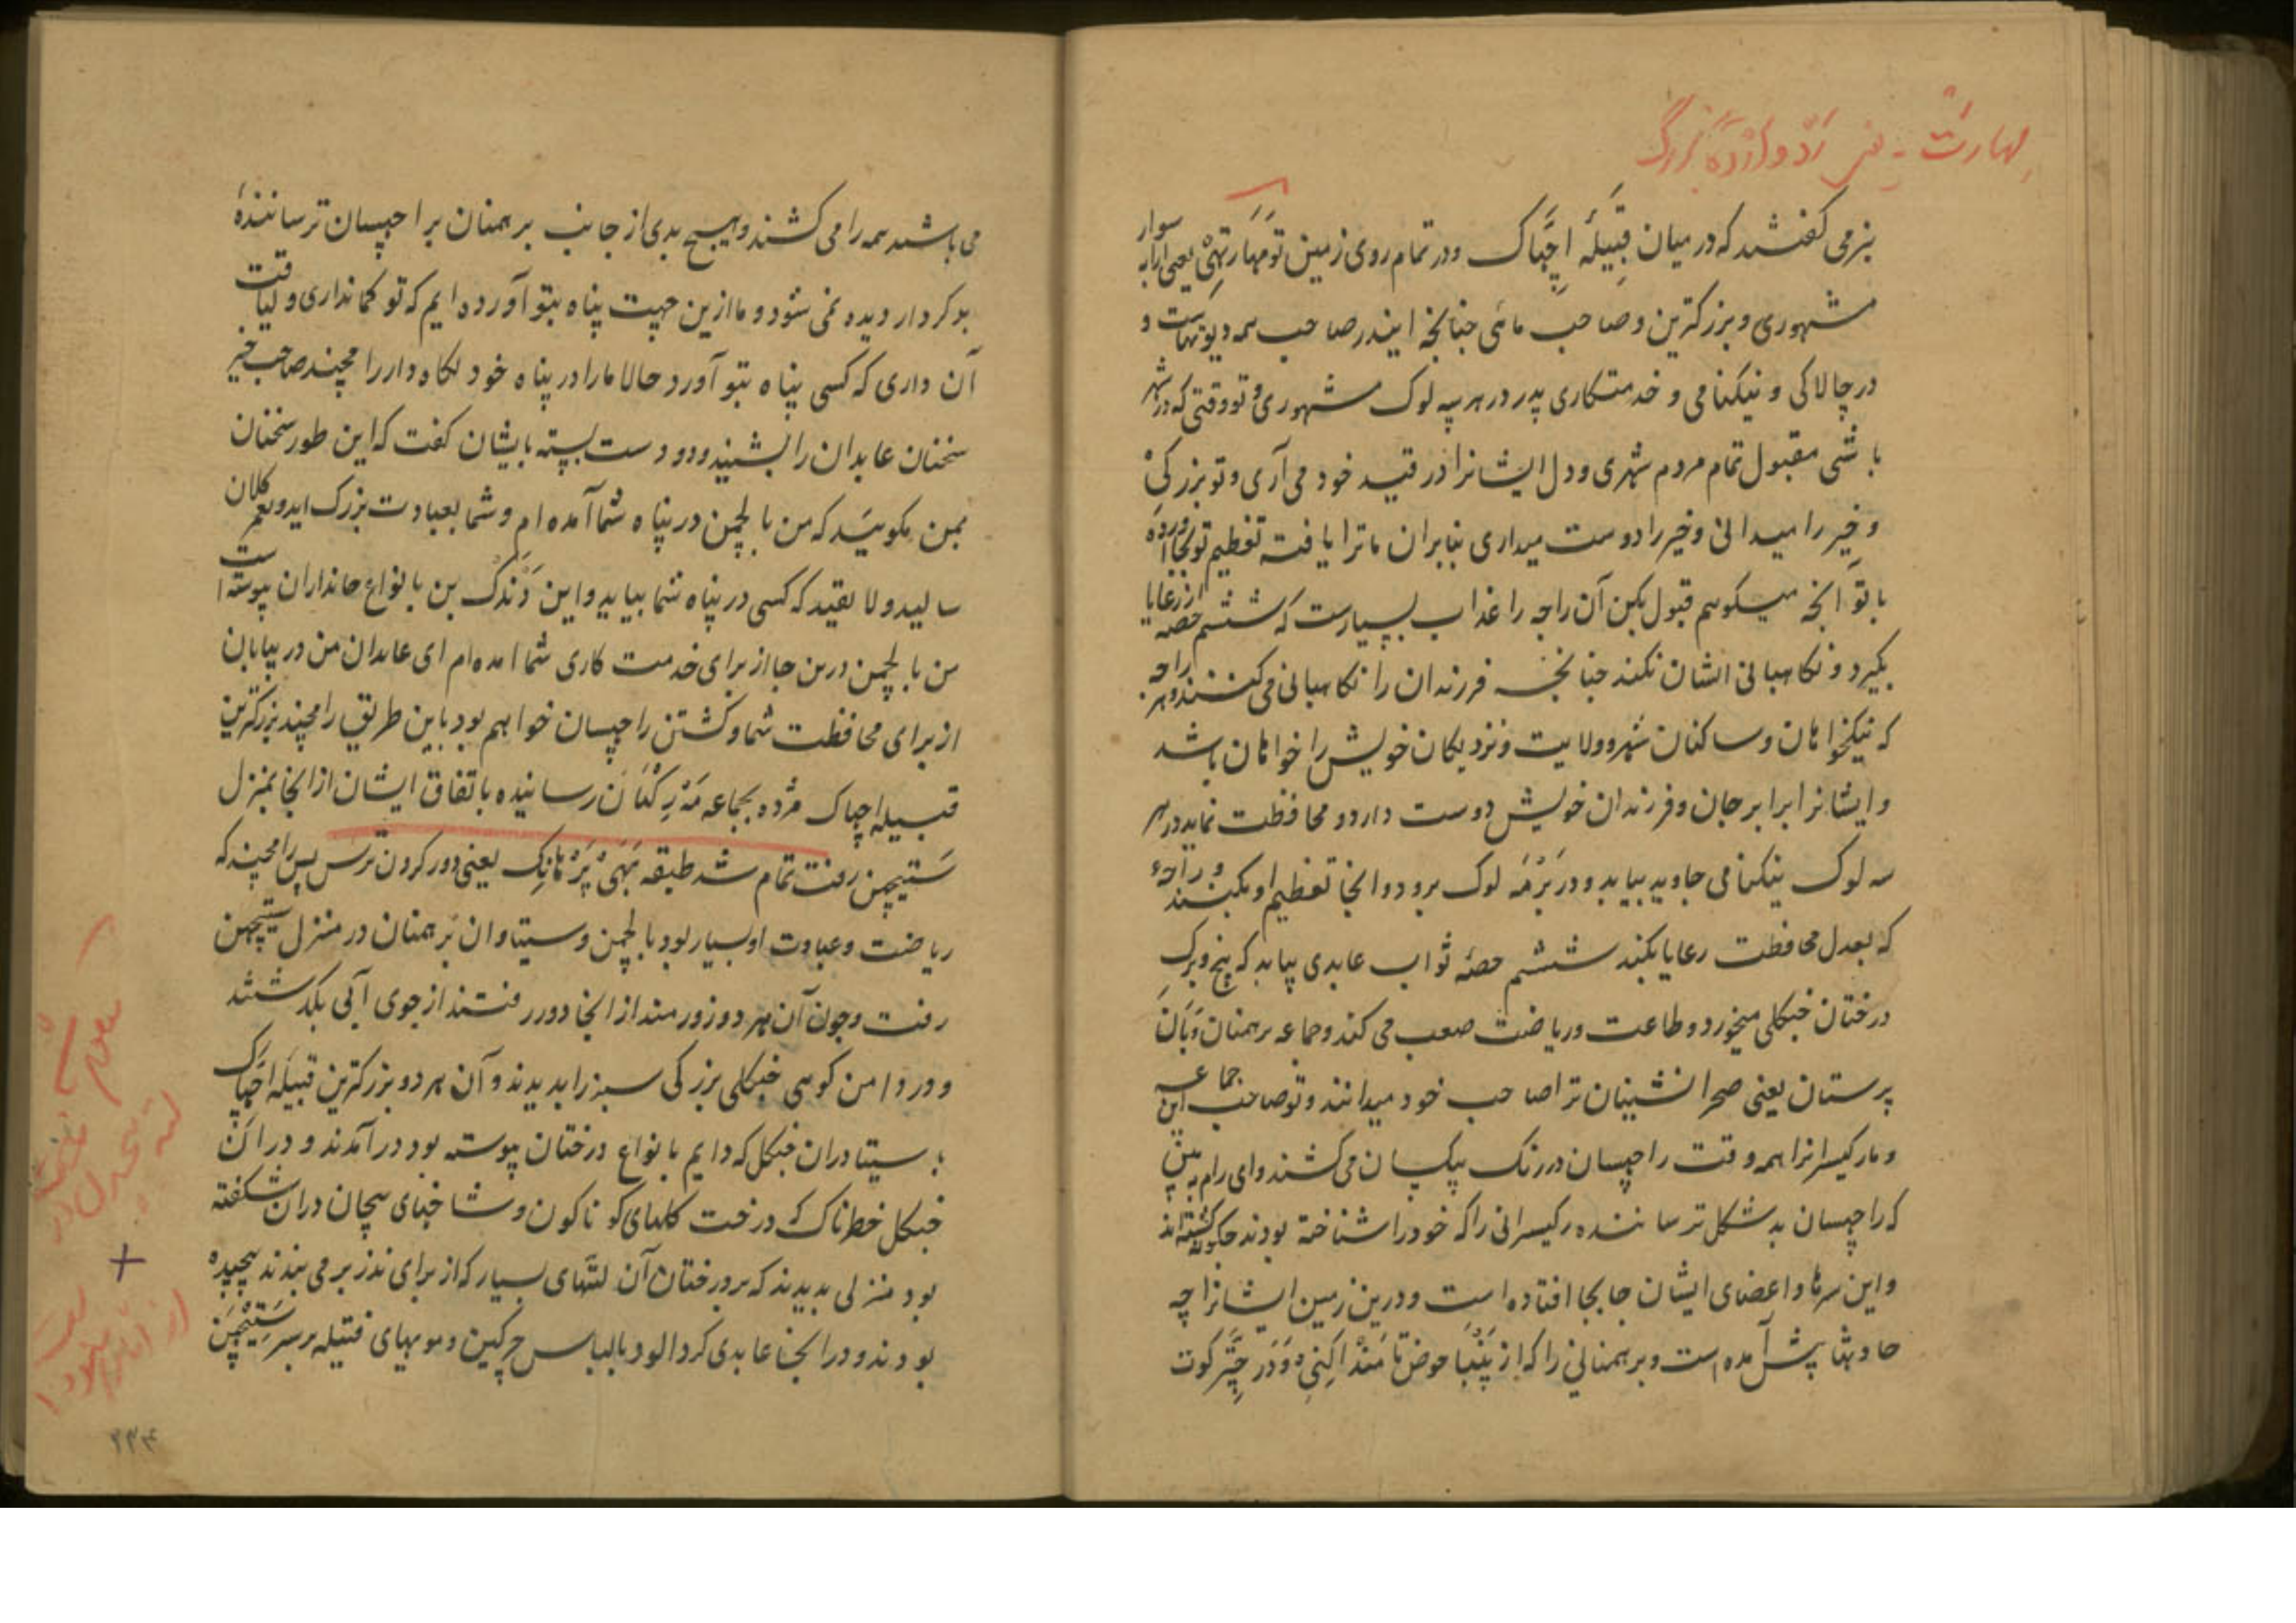 بنرمی گفتند که در میان قبیله اچهاک و در تمام روی زمین تو مهارتهی یعنی ارابه سوار
مشهوری و بزرکترین و صاحب مائی چنانچه ایندر صاحب همه دیوتهاست و
در چالاکی و نیکنامی و خدمتکاری پدر در هر سه لوک مشهوری و تو وقتی که در شهر
باشی مقبول تمام مردم شهری و دل ایشانرا در قید خود می آری و تو بزرکی
و خیر را میدانی و خیر را دوست میداری بنابران ما ترا یافته تعظیم تو بجا آورده
با تو آنچه میکوئیم قبول بکن آن راجه را عذاب بسیارست که ششم حصه از رعایا
بکیرد و نکاهبانی ایشان نکند چنانچه فرزندان را نکاهبانی می کنند و هر راجه
که نیکخواهان و ساکنان شهر و ولایت و نزدیکان خویش را خواهان باشد
و ایشانرا برابر جان و فرزندان خویش دوست دارد و محافظت نماید در هر
سه لوک نیکنامی جاوید بیابد و در برمه لوک برود و آنجا تعظیم او بکنند و راجه
که بعدل محافظت رعایا بکند ششم حصه ثواب عابدی بیابد که بیخ و برک
درختان جنکلی میخورد و طاعت و ریاضت صعب می کند و جماعه برهمنان وبان
پرستان یعنی صحرا نشینان ترا صاحب خود میدانند و تو صاحب این جماعه
و مار کیسرانرا همه وقت راچهسان در رنک بیکسان می کشند و ای رام به بین
که راچهسان بد شکل ترساننده رکیسرانی را که خود را شناخته بودند چکونه کشته اند
و این سرها و اعضای ایشان جابجا افتاده است و درین زمین ایشانرا چه
حادثها پیش آمده است و برهمنانی را که از پنبا حوض تا منداکنی و در چترکوت
می باشند همه را می کشند و هیچ بدی از جانب برهمنان براچهسان ترساننده
بدکردار دیده نمی شود و ما ازین جهت پناه بتو آورده ایم که تو کمانداری و لیاقت
آن داری که کسی پناه بتو آورد حالا ما را در پناه خود نکاه دار رامچند صاحب خیر
سخنان عابدان را بشنید و دو دست بسته بایشان کفت که این طور سخنان
بمن مکوئید که من با لچمن در پناه شما آمده ام و شما بعبادت بزرک اید و بعمر کلان
سالید و لایقید که کسی در پناه شما بیاید و این دندک بن با انواع جانداران پیوسته است
من با لچمن درین جا از برای خدمت کاری شما آمده ام ای عابدان من در بیابان
از برای محافظت شما و کشتن راچهسان خواهم بود باین طریق رامچند بزرکترین
قبیله اچهاک مژده بجماعه مدرکنان رسانیده باتفاق ایشان از آنجا بمنزل
ستیچهن رفت تمام شد طبقه بهی پرمانک یعنی دور کردن ترس پس رامچند که
ریاضت و عبادت او بسیار بود با لچمن و سیتا و آن برهمنان در منزل ستیچهن
رفت و چون آن هر دو زورمند از آنجا دورر فتند از جوی آبی بکذشتند
و در دامن کوهی جنکلی بزرکی سبز را بدیدند و آن هر دو بزرکترین قبیله اچهاک
با سیتا دران جنکل که دایم با انواع درختان پیوسته بود درآمدند و دران
جنکل خطرناک که درخت کلهای کوناکون و شاخهای پیچان دران شکفته
بود منزلی بدیدند که بر درختان آن لتهای بسیار که از برای نذر بر می بندند پیچیده
بودند و در آنجا عابدی کرد آلود با لباس چرکین و مویهای فتیله بر سر ستیچهن
۲۳۴